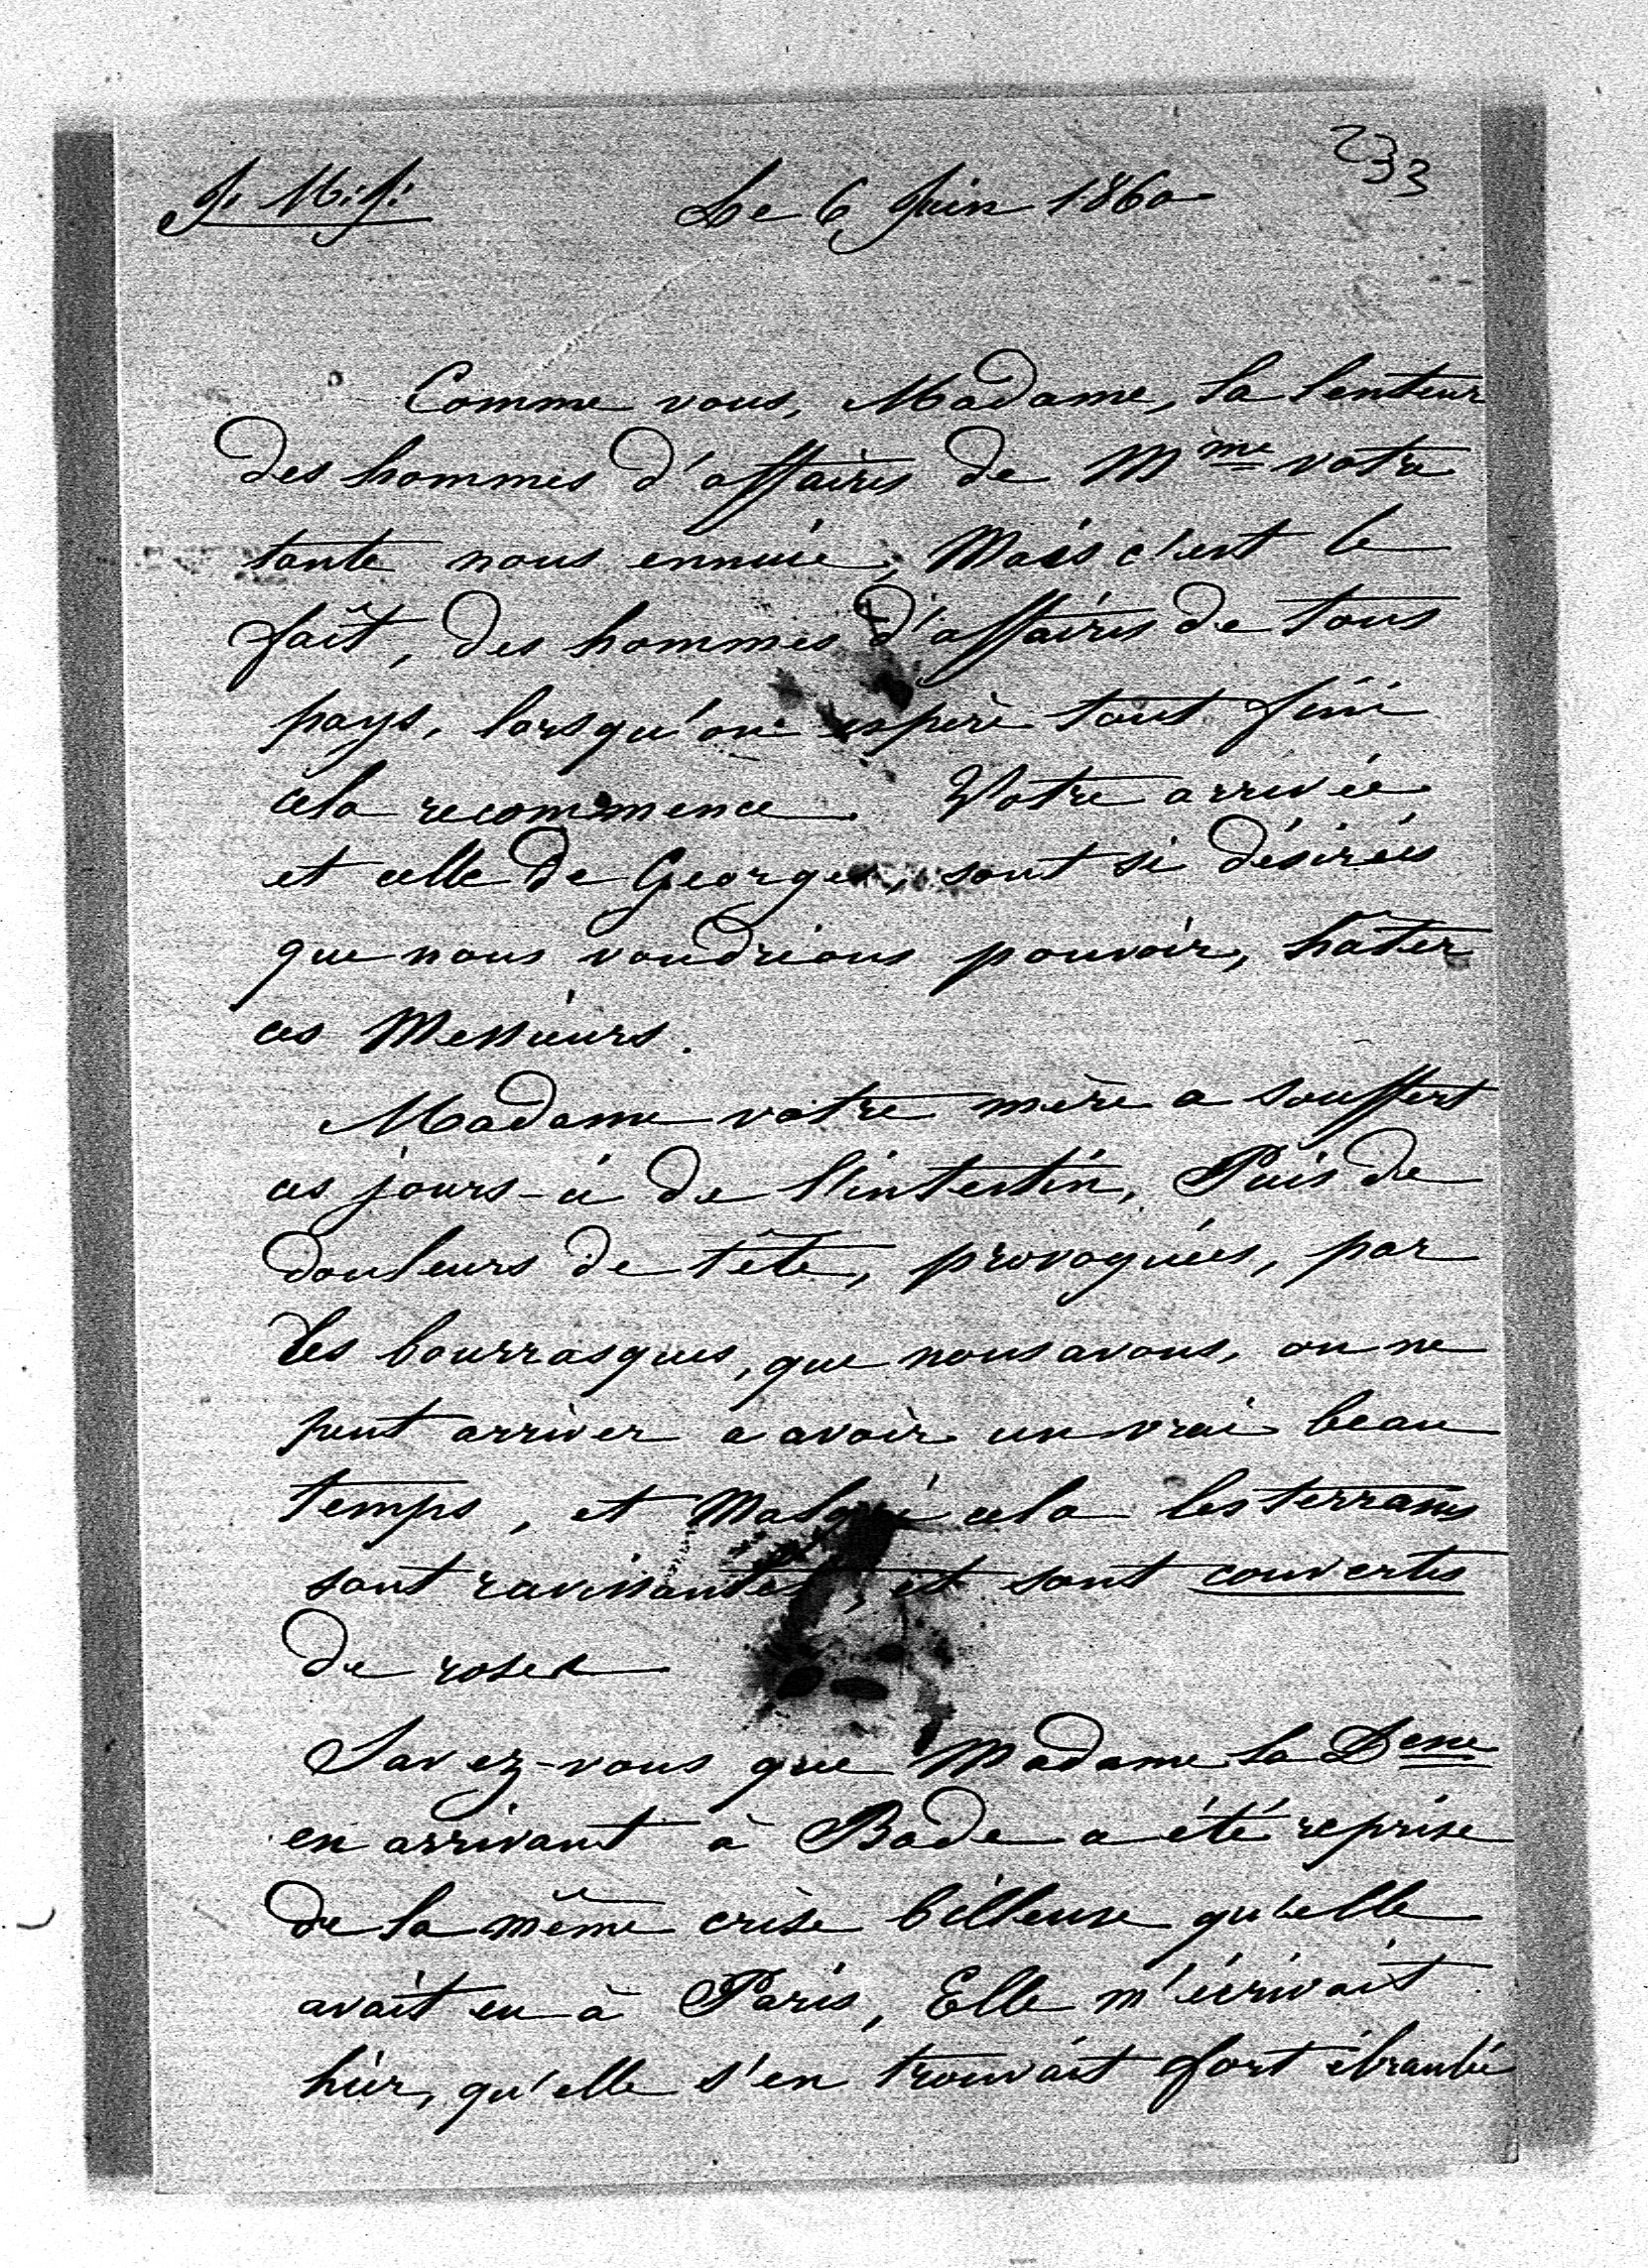 233
J. M. J. Le 6 Juin 1860
Comme vous, Madame, la lenteur
des hommes d'affaires de Mme votre
tante nous ennuie, Mais c'est le
fait, des hommes d'affaires de tous
pays, lorsqu'on espère tout fini
cela recommence. Votre arrivée
et celle de Georges, sont si désirées
que nous voudrions pouvoir, hâter
ces Messieurs.
Madame votre mère a souffert
ces jours-ci de l'intestin, Puis de
douleurs de tête, provoquées, par
les bourrasques, que nous avons, on ne
peut arriver a avoir un vrai beau
temps, et Malgré cela les terrasses
sont ravissantes, et sont couvertes
de roses
Savez-vous que Madame la Desse
en arrivant à Bade a été reprise
de la même crise billeuse qu'elle
avait eu à Paris, Elle m'écrivait
hier, qu'elle s'en trouvait fort ébranlée